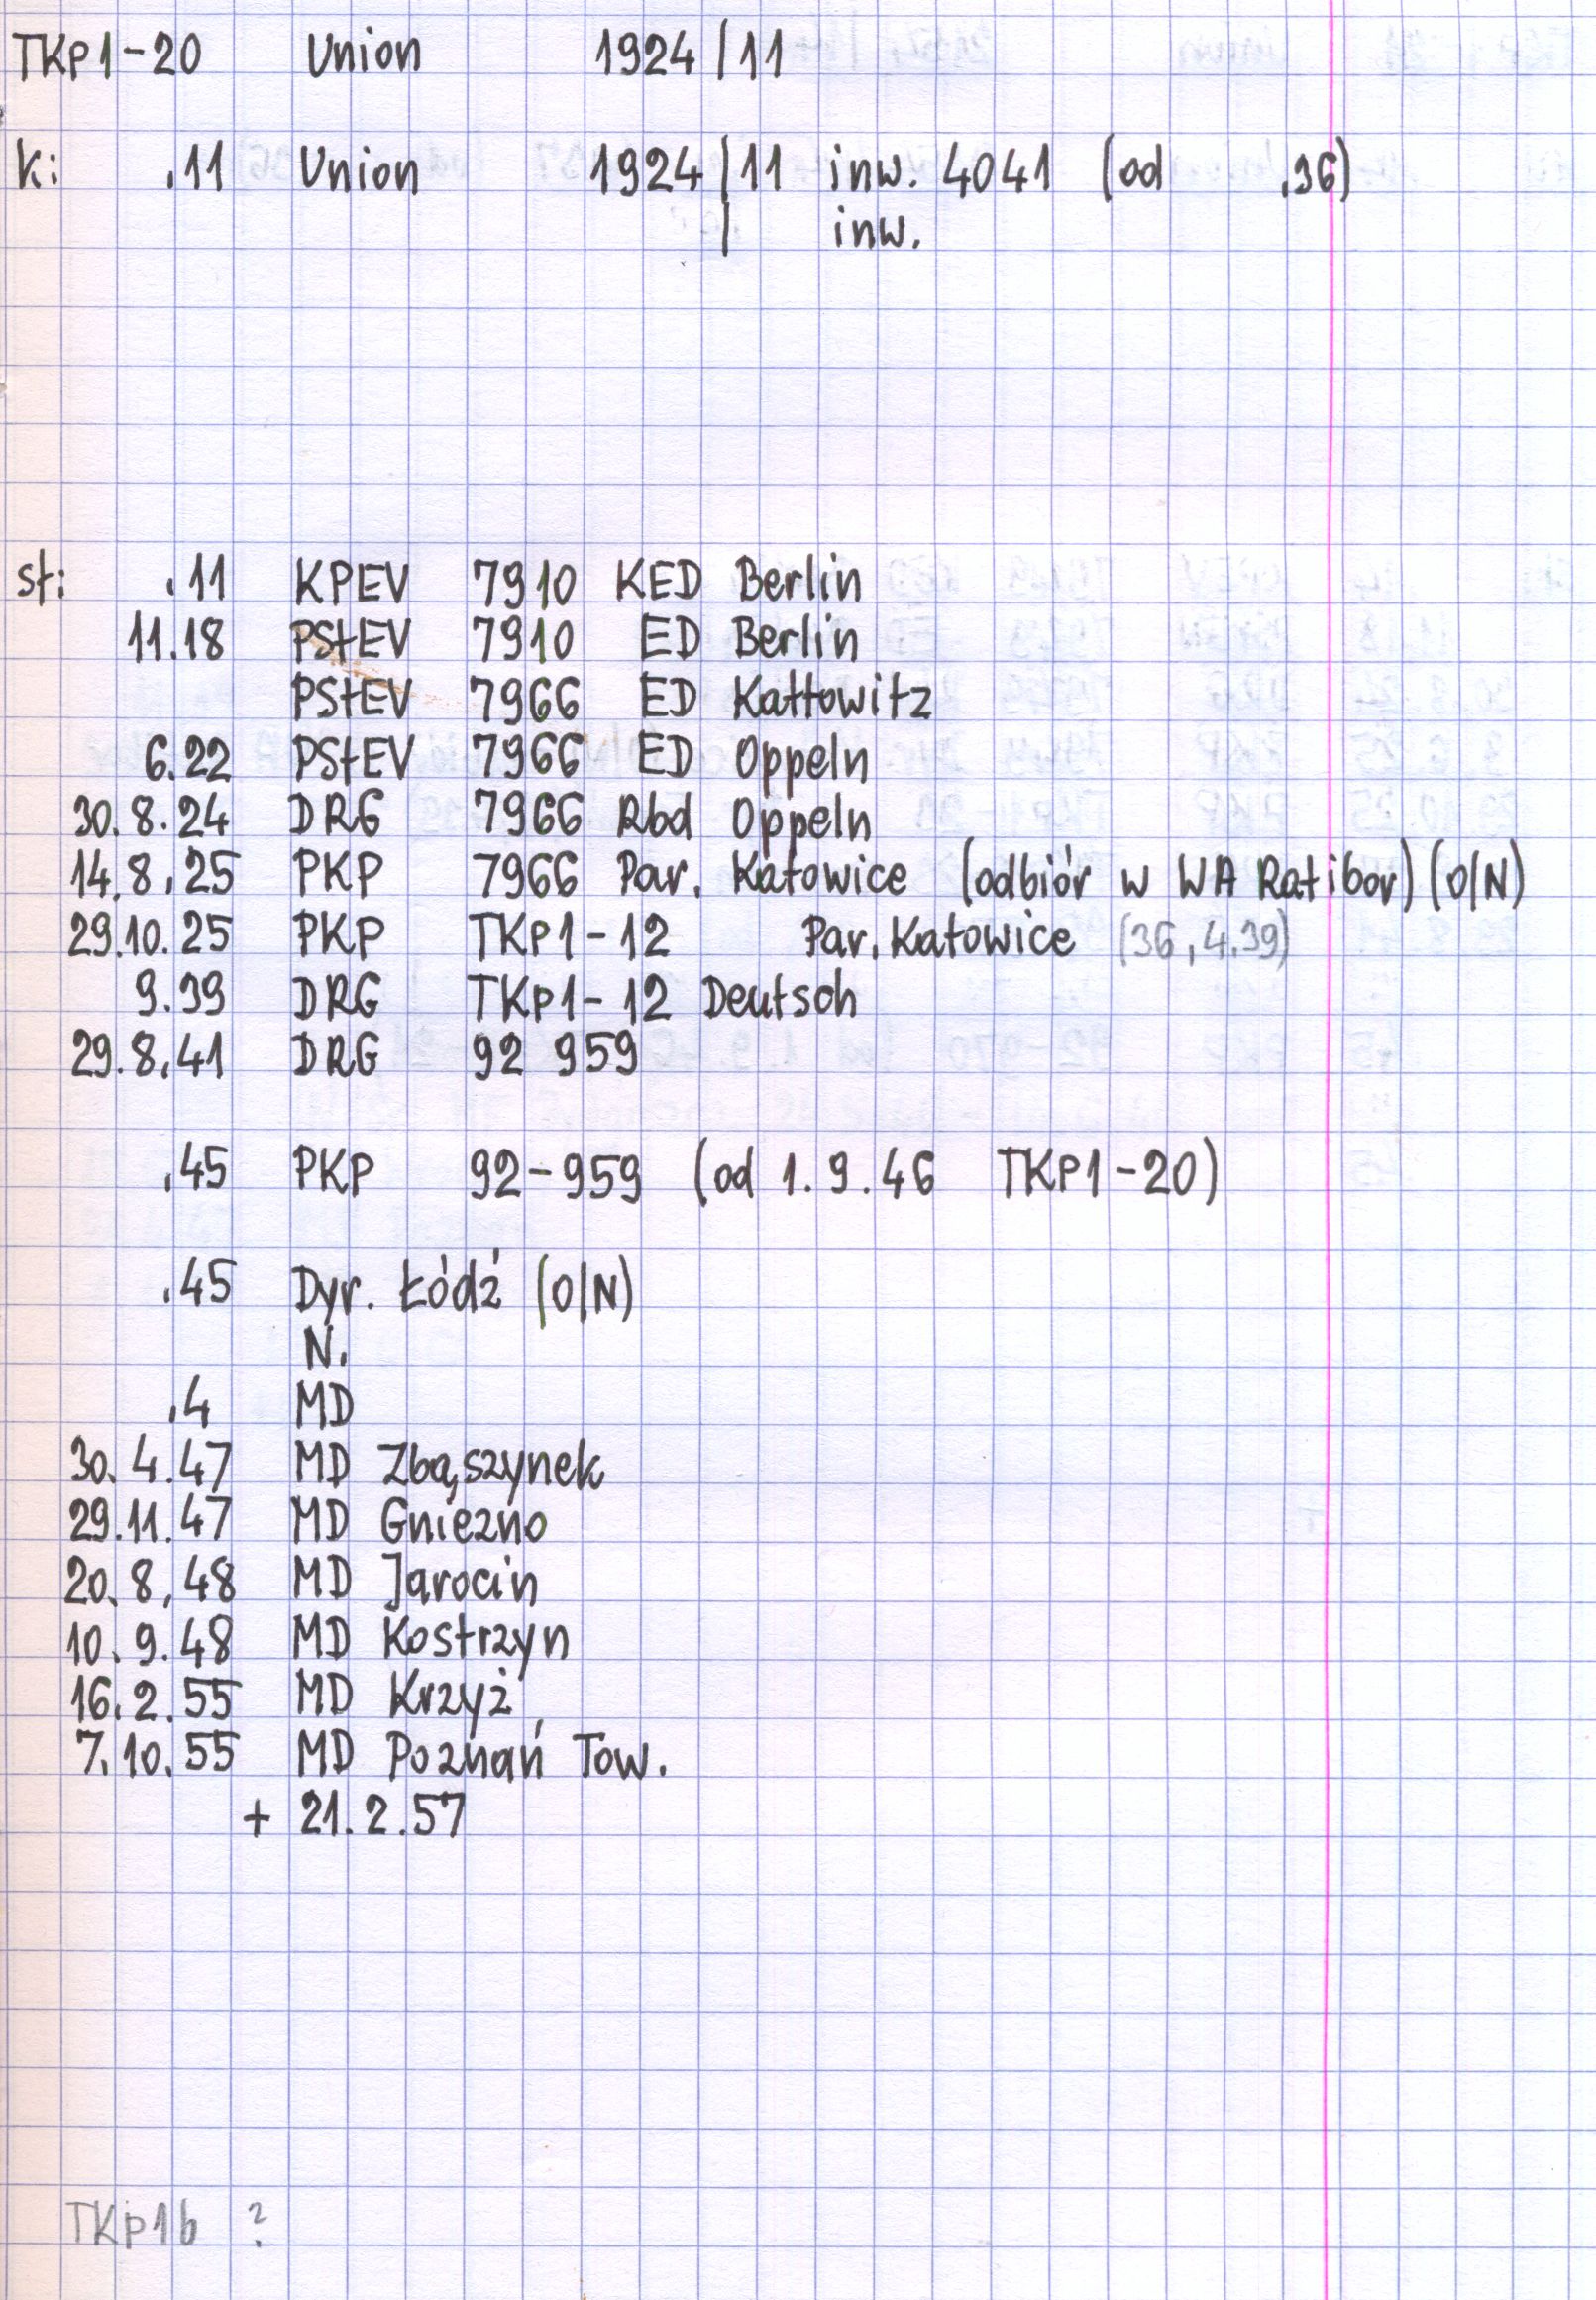 TKp1-20 Union 1924/11
k: .11 Union 1924/11 inw. 4041 (od .36)
/ inw.
st: .11 KPEV 7910 KED Berlin
11.18 PStEV 7910 ED Berlin
PStEV 7966 ED Kattowitz
6.22 PStEV 7966 ED Oppeln
30.8.24 DRG 7966 Rbd Oppeln
14.8.25 PKP 7966 Par. Katowice (odbiór w WA Ratibor) (O/N)
29.10.25 PKP TKp1-12 Par. Katowice (36, 4.39)
9.39 DRG TKp1-12 Deutsch
29.8.41 DRG 92 959
.45 PKP 92-959 (od 1.9.46 TKP1-20)
.45 Dyr. Łódź (O/N)
N.
.4 MD
30.4.47 MD Zbąszynek
29.11.47 MD Gniezno
20.8.48 MD Jarocin
10.9.48 MD Kostrzyn
16.2.55 MD Krzyż
7.10.55 MD Poznań Tow.
+ 21.2.57
TKp1b ?